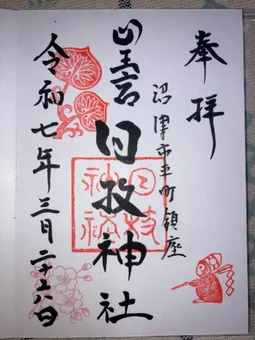 奉拝
沼津市平町鎮座
山王宮日枝神社
日枝神社
令和七年三月二十六日